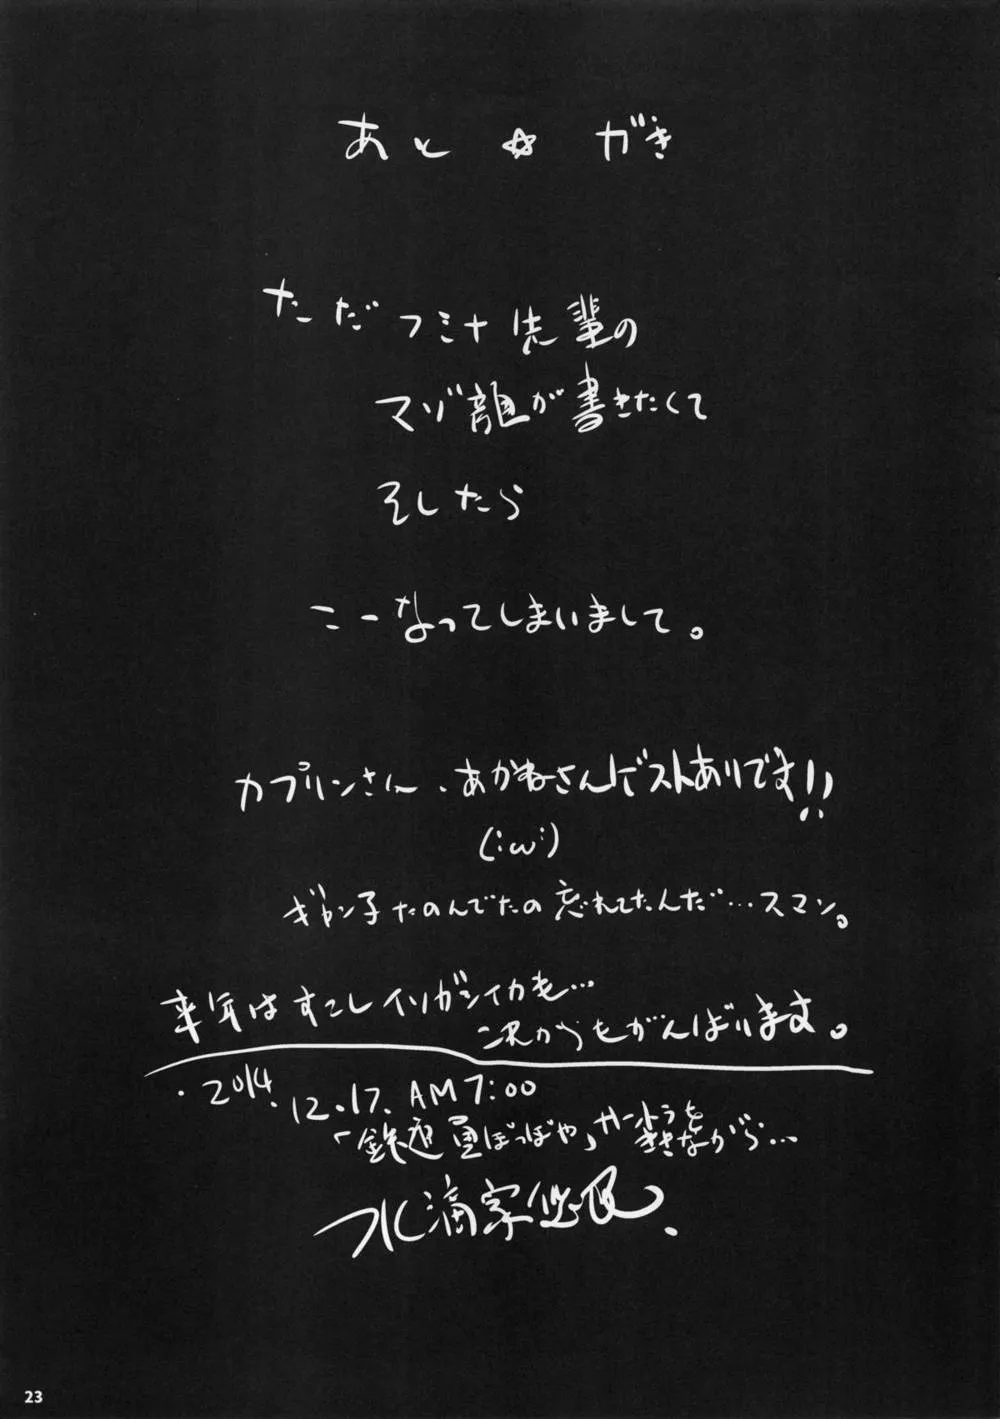 あと☆がき
ただフミナ先輩の
マゾ顔が書きたくて
そしたら
こーなってしまいまして。
カプリンさん、あかねさんゲストありです!!
(:ω:)
ギャン子たのんでたの忘れてたんだ…スマン。
来年はすこしイソガシイカも…
これからもがんばります。
・2014.12.17. AM7:00
「鉄道員ぽっぽや」サートラを
ききながら…
水滴家
23